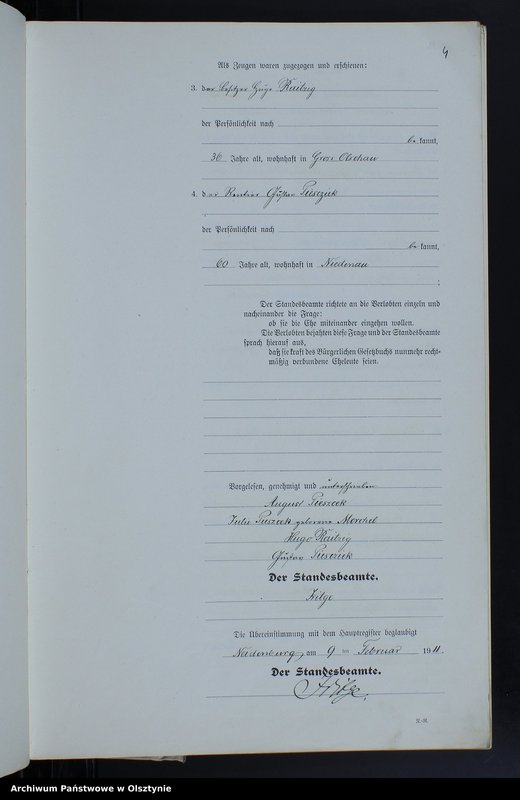 4
Als Zeugen waren zugezogen und erschienen:
3. der Besitzer Hugo Railzig
der Persönlichkeit nach
be kannt,
36 Jahre alt, wohnhaft in Gross Olschau
4. der Rentier Gustav
der Persönlichkeit nach
be kannt,
60 Jahre alt, wohnhaft in Niedenau
;
Der Standesbeamte richtete an die Verlobten einzeln und
nacheinander die Frage:
ob sie die Ehe miteinander eingehen wollen.
Die Verlobten bejahten diese Frage und der Standesbeamte
sprach hierauf aus,
daß sie kraft des Bürgerlichen Gesetzbuchs nunmehr recht-
mäßig verbundene Eheleute seien.
Vorgelesen, genehmigt und unterschrieben
August
Julie geborene
Hugo Railzig
Gustav
Der Standesbeamte.
Die Übereinstimmung mit dem Hauptregister beglaubigt
Neidenburg, am 9 ten Februar 1911.
Der Standesbeamte.
Archiwum Państwowe w Olsztynie